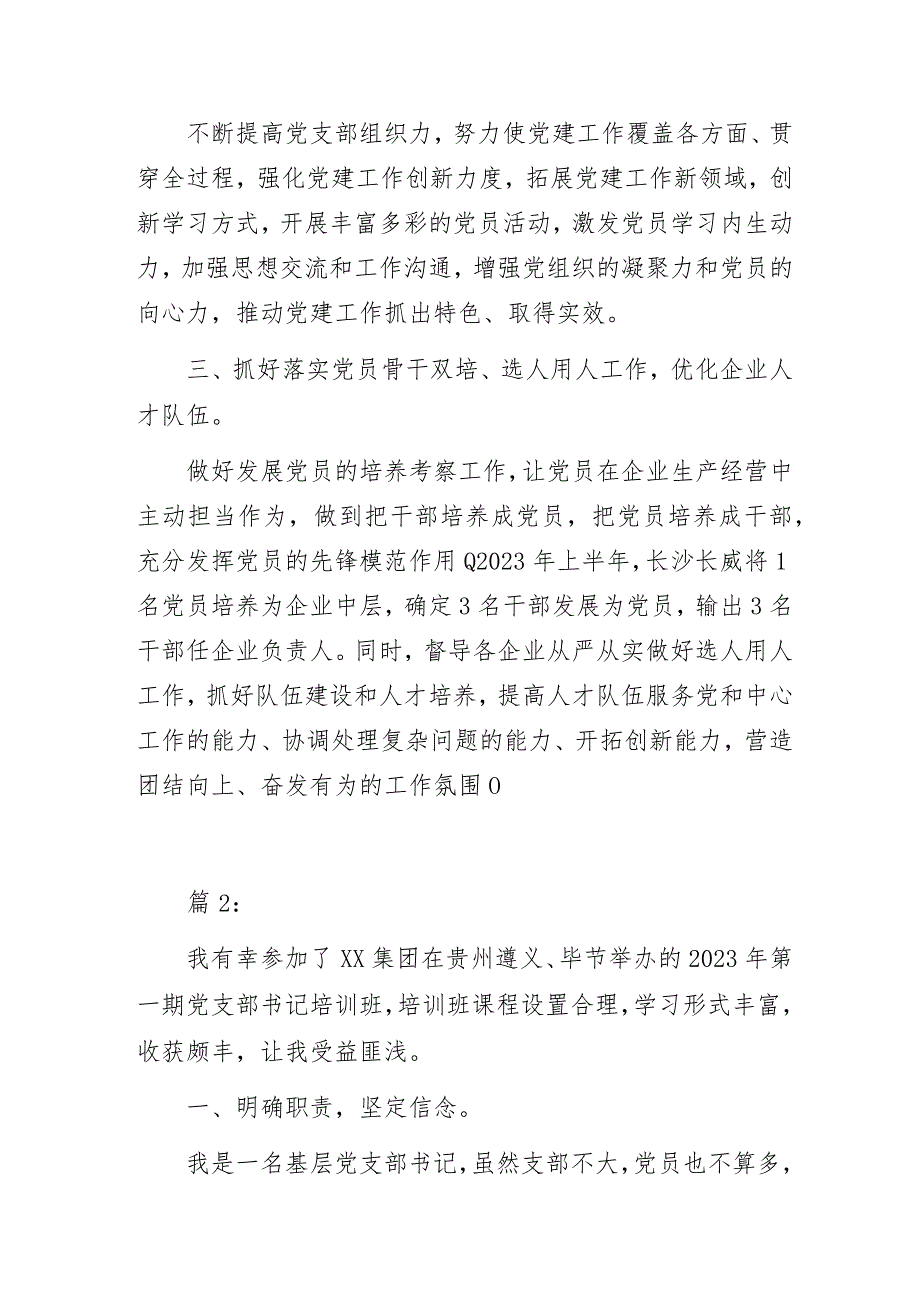 不断提高党支部组织力，努力使党建工作覆盖各方面、贯
穿全过程，强化党建工作创新力度，拓展党建工作新领域，创
新学习方式，开展丰富多彩的党员活动，激发党员学习内生动
力，加强思想交流和工作沟通，增强党组织的凝聚力和党员的
向心力，推动党建工作抓出特色、取得实效。
三、抓好落实党员骨干双培、选人用人工作，优化企业人
才队伍。
做好发展党员的培养考察工作，让党员在企业生产经营中
主动担当作为，做到把干部培养成党员，把党员培养成干部，
充分发挥党员的先锋模范作用 Q2023 年上半年，长沙长威将 1
名党员培养为企业中层，确定 3 名干部发展为党员，输出 3 名
干部任企业负责人。同时，督导各企业从严从实做好选人用人
工作，抓好队伍建设和人才培养，提高人才队伍服务党和中心
工作的能力、协调处理复杂问题的能力、开拓创新能力，营造
团结向上、奋发有为的工作氛围 O
篇 2：
我有幸参加了 XX 集团在贵州遵义、毕节举办的 2023 年第
一期党支部书记培训班，培训班课程设置合理，学习形式丰富，
收获颇丰，让我受益匪浅。
一、明确职责，坚定信念。
我是一名基层党支部书记，虽然支部不大，党员也不算多，